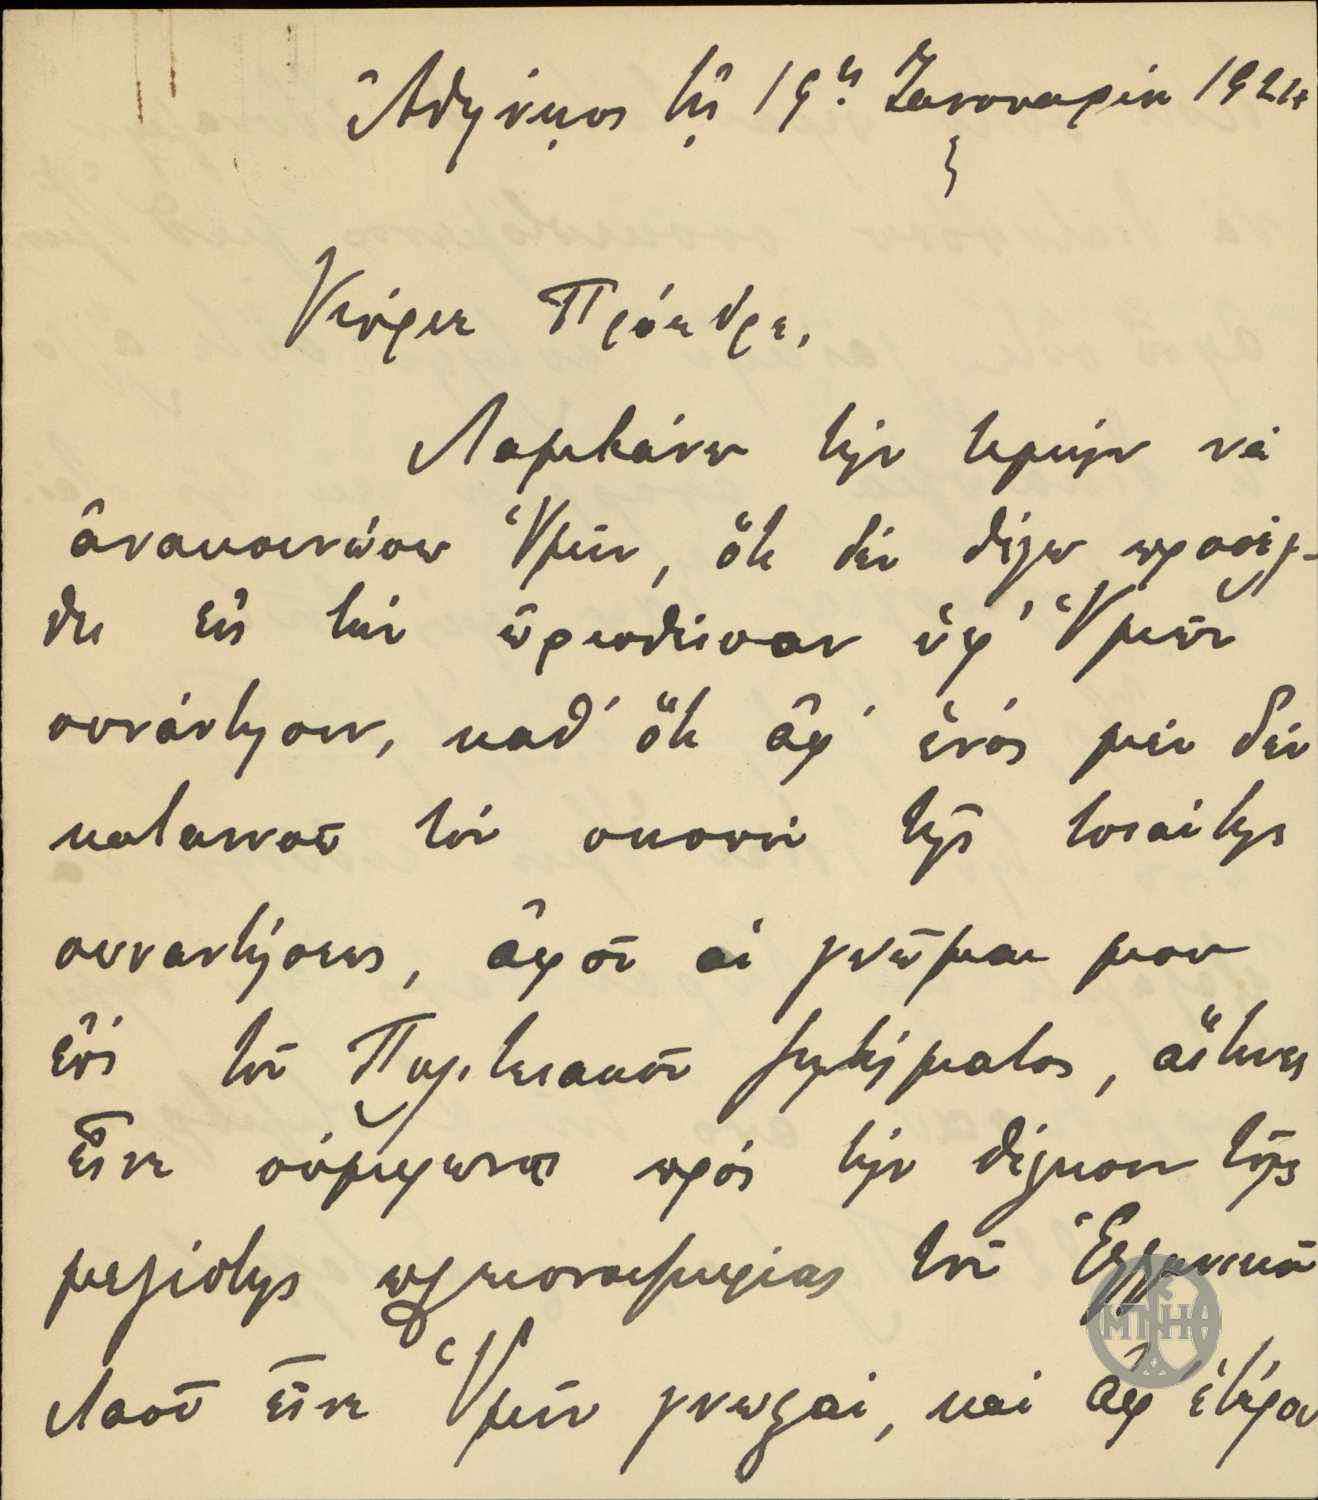 Ἀθήνησι τῇ 19ῃ Ἰανουαρίου 1924
Κύριε Πρόεδρε,
Λαμβάνω τὴν τιμὴν νὰ
ἀνακοινώσω Ὑμῖν, ὅτι δὲν θέλω προσέλ-
θει εἰς τὴν ὁρισθεῖσαν ὑφ' Ὑμῶν
συνάντησιν, καθ' ὅτι ἀφ' ἑνὸς μὲν δὲν
κατανοῶ τὸν σκοπὸν τῆς τοιαύτης
συναντήσεως, ἀφοῦ αἱ γνῶμαι μου
ἐπὶ τοῦ Πολιτειακοῦ ζητήματος, αἵτινες
εἶνε σύμφωνοι πρὸς τὴν θέλησιν τῆς
μεγίστης πλειονοψηφίας τοῦ Ἑλληνικοῦ
Λαοῦ εἶνε Ὑμῖν γνωσταί, καὶ ἀφ' ἑτέρου
ΜΝΗ